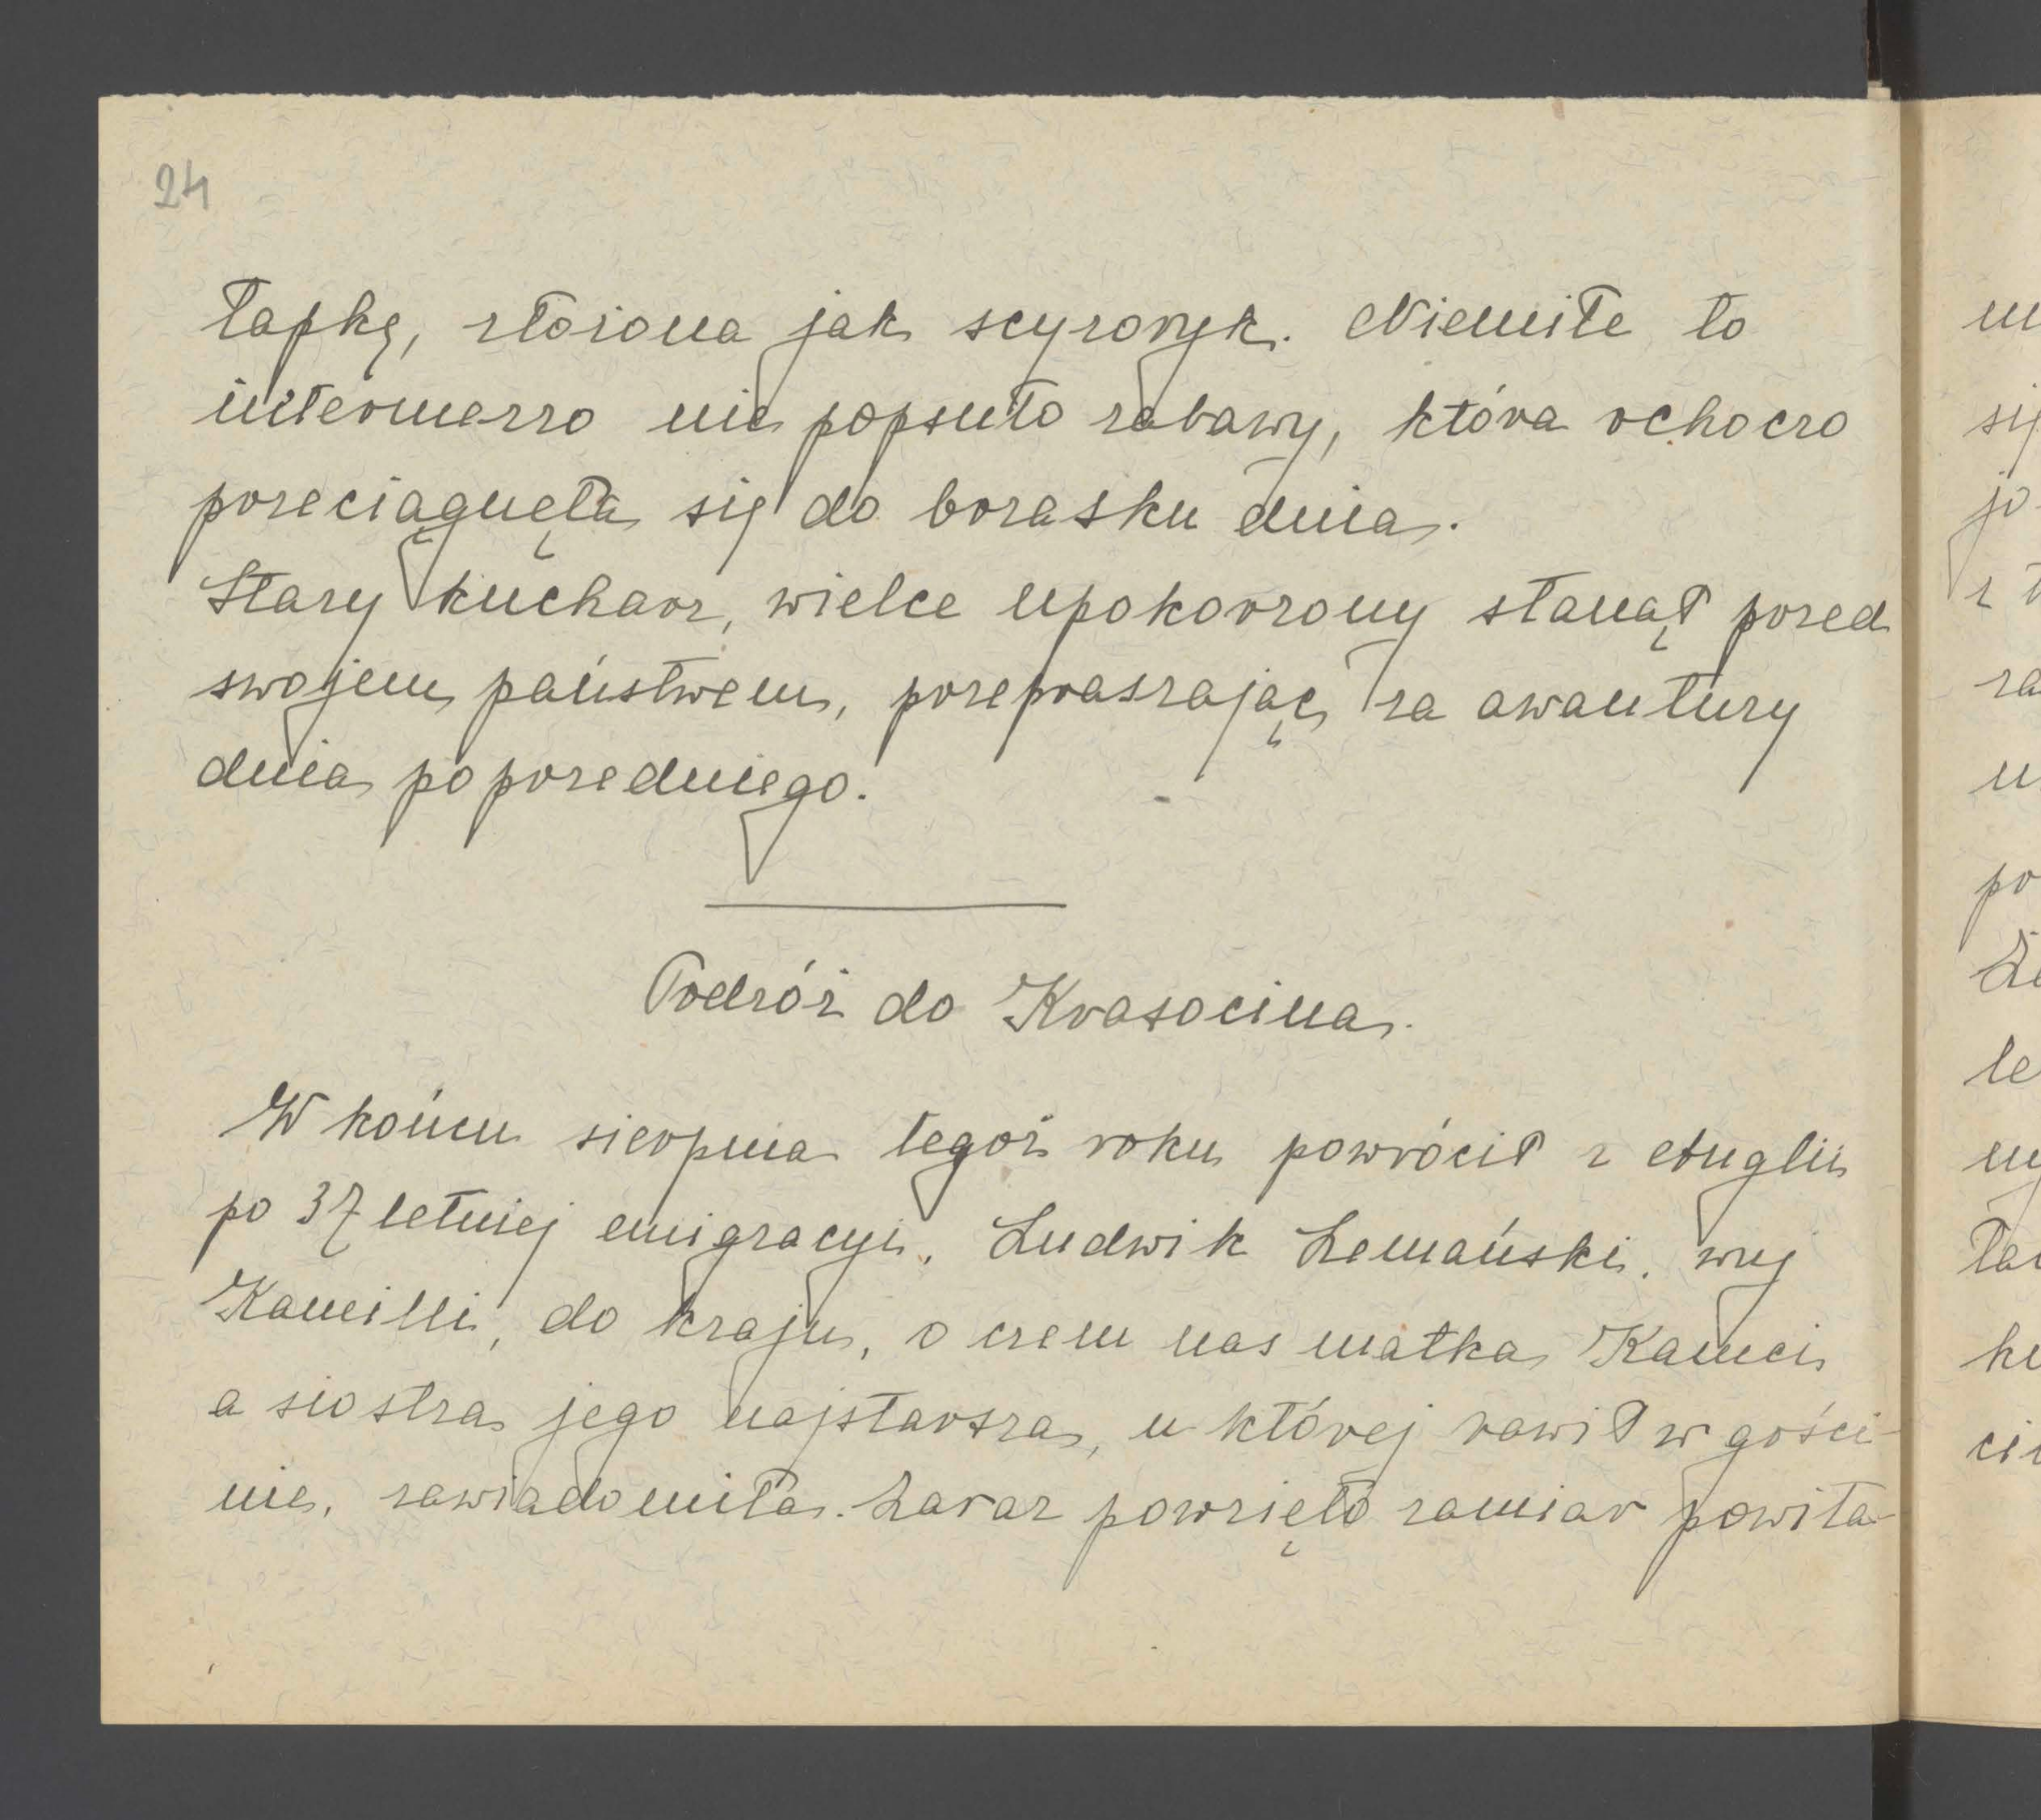 24
łapkę, złożona jak scyzoryk. Niemiłe to
intermezzo nie popsuło zabawy, która ochoczo
przeciągnęła się do brzasku dnia.
Stary kucharz, wielce upokorzony stanął przed
swojem państwem, przepraszając za awantury
dnia poprzedniego.
Podróż do Krasocina.
W końcu sierpnia tegoż roku powrócił z Anglii
po 37 letniej emigracyi, Ludwik Lemański, wuj
Kamilli, do kraju, o czem nas matka Kamci
a siostra jego najstarsza, u której bawił w gości-
nie, zawiadomiła. Zaraz powzięto zamiar powita-